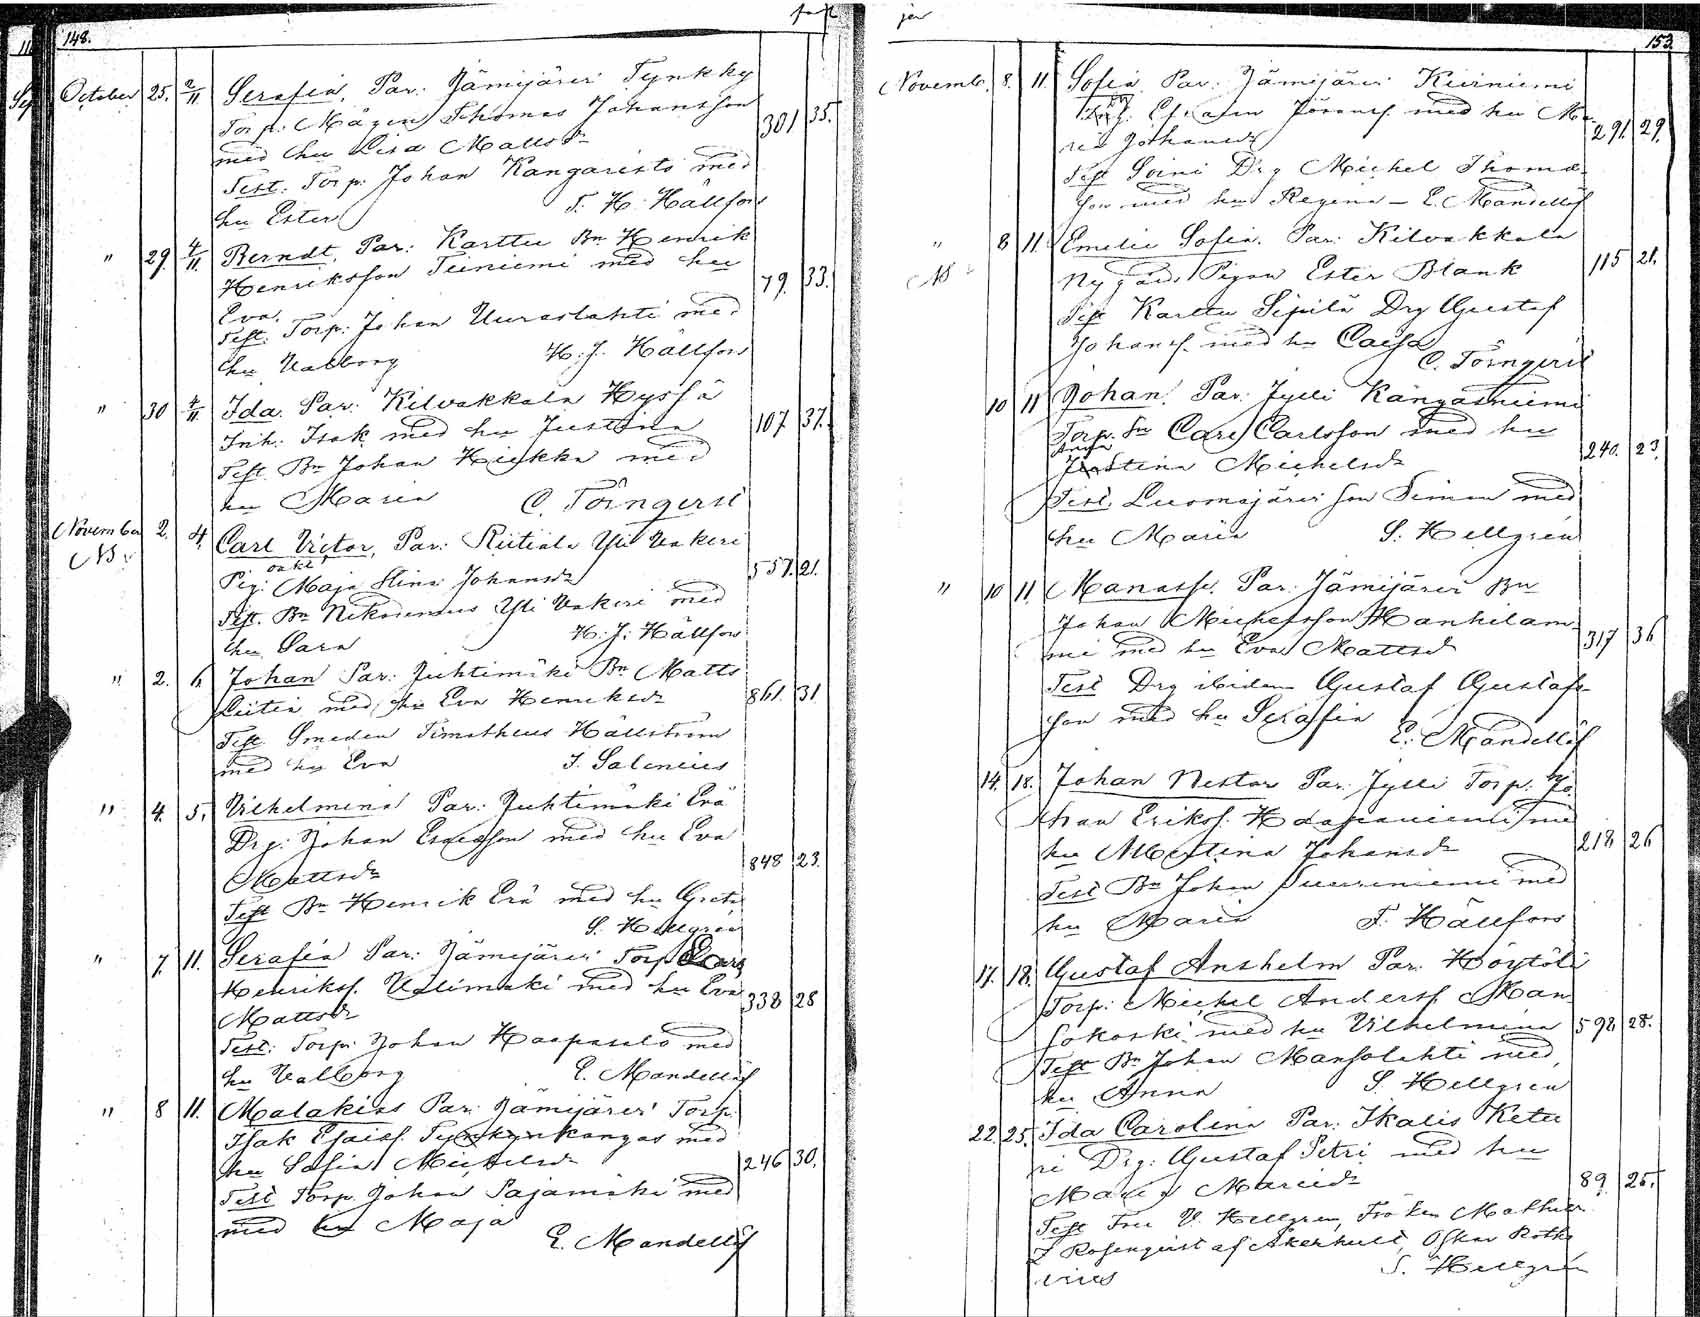 148.
October 25. 2/11 Serafia, Par: Jämijärvi Tynkky
Torp: Mågen Thomas Johansson 301 35.
med hu Lisa Mattsdr
Test: Torp: Johan Kangaristo med
hu Ester F. H. Hällfors
" 29. 4/11 Berndt, Par: Karttu Bn Henrik
Henriksson Teiniemi med hu 79. 33.
Eva.
Test: Torp: Johan Uuraslahti med
hu Valborg H. J. Hällfors
" 30 4/11 Ida. Par: Kilvakkala Hyssä
Inh: Isak med hu Justina 107 37.
Test Bn Johan Heikka med
hu Maria C. Törnqvist
November 2. 4. Carl Victor, Par: Riitiala Yli Vakeri
NB oäkt
Pig: Maja Stina Johansdr 557. 21.
Test. Bn Nikodemus Yli Vakeri med
hu Sara H. J. Hällfors
" 2. 6. Johan Par: Juhtimäki Bn Matts
Leitia med hu Eva Henriksdr 861. 31
Test Smeden Timotheus Hällström
med hu Eva J. Salenius
" 4. 5. Vilhelmina Par: Juhtimäki Erä
Drg: Johan Esaiasson med hu Eva
Mattsdr 848 23.
Test Bn Henrik Erä med hu Greta
S. Hellgrén
" 7. 11. Serafia Par: Jämijärvi Torp
Henrikss. Valimäki med hu Eva 338 28
Mattsdr
Test: Torp: Johan Haapasalo med
hu Valborg E. Mandellöf
" 8 11. Malakias Par: Jämijärvi Torp.
Isak Esaiss. Tynkkynkangas med
hu Sofia Michelsdr 246 30.
Test Torp. Johan Pajamäki med
med hu Maja
E. Mandellöf
153.
Novemb. 8. 11. Sofia Par: Jämijärvi Kurniemi
Efraim Jöranss. med hu Ma- 291. 29.
ria Johansdr
Test Soini Drg Michel Thomas-
son med hu Regina – E. Mandellöf
" 8 11. Emelie Sofia. Par: Kilvakkala
NB Nygård Pigan Ester Blank 115 21.
Test Karttu Sipilä Drg Gustaf
Johanss. med hu Caisa
C. Törnqvist
10 11 Johan. Par: Jylli Kangasniemi
Torp. Sn Carl Carlsson med hu
Anna
Stina Michelsdr 240. 23.
Test. Luomajärvi Son Simon med
hu Maria S. Hellgrén
" 10 11. Manasse. Par: Jämijärvi Bn
Johan Michelsson Hanhilam-
mi med hu Eva Mattsd 317 36
Test Drg ibidem Gustaf Gustafs-
son med hu Serafia
E. Mandellöf
14. 18. Johan Nestor Par: Jylli Torp: Jo
han Erikss. Haapaniemi me
hu Mestina Johansdr 218 26
Test Bn Johan Suuriniemi med
hu Maria F. Hällfors
17. 18. Gustaf Anshelm Par: Höytölä
Torp: Michel Anderss. Man-
sokoski med hu Vilhelmina 592 28.
Test Bn Johan Mansolahti med
hu Anna S. Hellgren
22. 25. Ida Carolina Par: Ikalis Ketu
ri Drg: Gustaf Petri med hu
Maria 89. 25.
Test Fru V. Hellgren, Fröken Mathild
Rosenqvist af Åkerhult, Oskar Rothe
vius S. Hellgrén